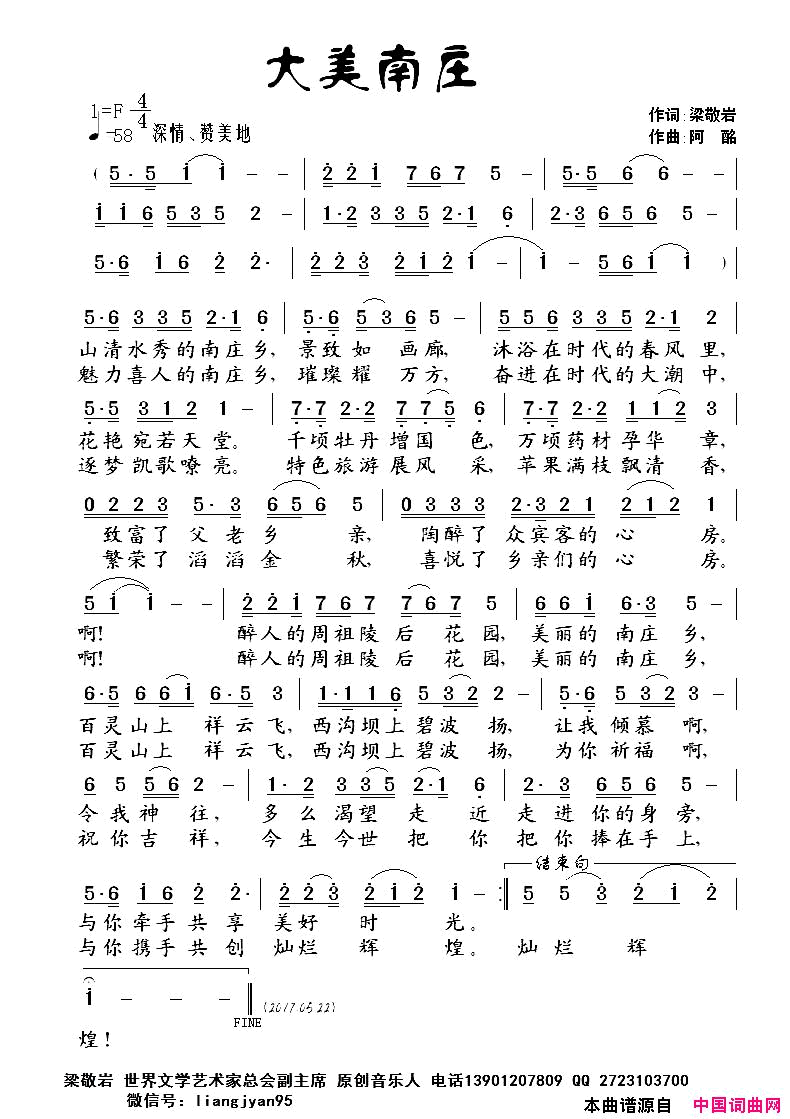 大美南庄
1=F 4/4
♩=58 深情、赞美地
作词：梁敬岩
作曲：阿 酩
( 5·5 i i - - | 2 2 i 7 6 7 5 - | 5·5 6 6 - - |
i i 6 5 3 5 2 - | 1·2 3 3 5 2·1 6 | 2·3 6 5 6 5 - |
5·6 i 6 2 2· | 2 2 3 2 i 2 i - | i - 5 i i )
5·6 3 3 5 2·1 6 | 5·6 5 3 6 5 - | 5 5 6 3 3 5 2·1 2 |
山清水秀的南庄乡, 景致如 画廊, 沐浴在时代的春风里,
魅力喜人的南庄乡, 璀璨耀 万方, 奋进在时代的大潮中,
5·5 3 1 2 1 - | 7·7 2·2 7 7 5 6 | 7·7 2·2 1 1 2 3 |
花艳宛若天堂。 千顷牡丹增国 色, 万顷药材孕华 章,
逐梦凯歌嘹亮。 特色旅游展风 采, 苹果满枝飘清 香,
0 2 2 3 5·3 6 5 6 5 | 0 3 3 3 2·3 2 1 2 1 2 1 |
致富了 父老乡 亲, 陶醉了 众宾客的 心 房。
繁荣了 滔滔金 秋, 喜悦了 乡亲们的 心 房。
5 i i - - | 2 2 i 7 6 7 7 6 5 | 6 6 i 6·3 5 - |
啊! 醉人的周祖陵 后 花园, 美丽的 南庄乡,
啊! 醉人的周祖陵 后 花园, 美丽的 南庄乡,
6·5 6 6 i 6·5 3 | 1·1 1 6 5 3 2 2 - | 5·6 5 3 2 3 - |
百灵山上 祥云飞, 西沟坝上碧波 扬, 让我 倾慕 啊,
百灵山上 祥云飞, 西沟坝上碧波 扬, 为你 祈福 啊,
6 5 5 6 2 - | 1·2 3 3 5 2·1 6 | 2·3 6 5 6 5 - |
令我神 往, 多么渴望 走 近 走进你的身旁,
祝你吉 祥, 今生今世 把 你 把你捧在手上,
结束句
5·6 i 6 2 2· | 2 2 3 2 i 2 i - :‖ 5 5 3 2 i 2 |
与你牵手共享 美好 时 光。
与你携手共创 灿烂 辉 煌。 灿烂 辉
i - - - ‖ (2017.05.22)
FINE
煌!
梁敬岩 世界文学艺术家总会副主席 原创音乐人 电话13901207809 QQ 2723103700
微信号：liangjyan95
本曲谱源自 中国词曲网